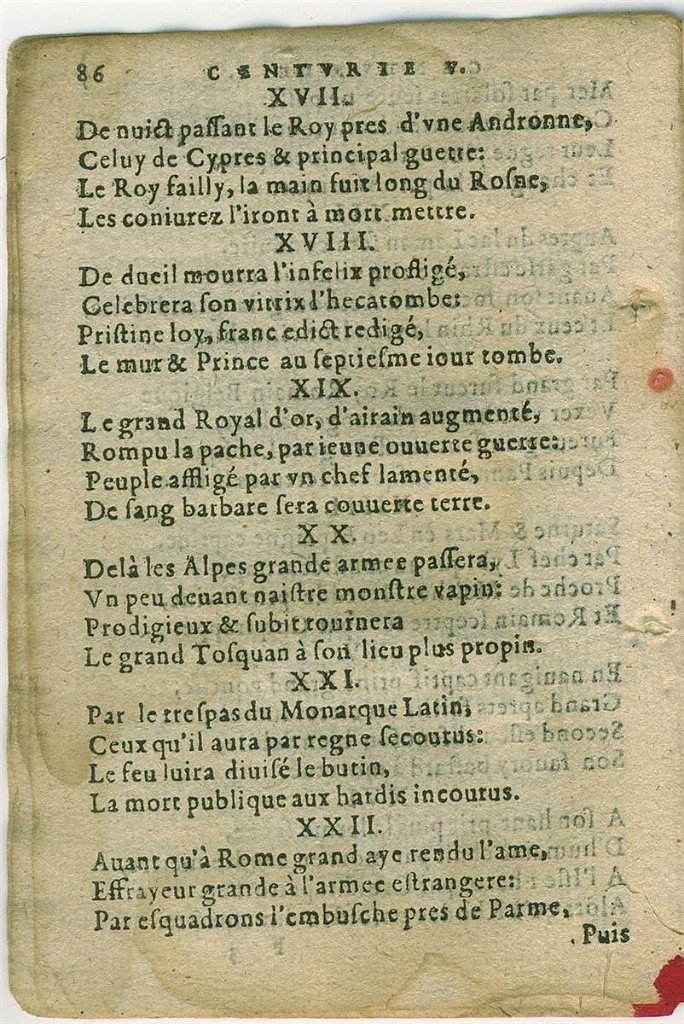 86 CENTVRIE V.
XVII.
De nuict paſſant le Roy pres d'vne Andronne,
Celuy de Cypres & principal guette:
Le Roy failly, la main fuit long du Roſne,
Les coniurez l'iront à mort mettre.
XVIII.
De dueil mourra l'infelix profligé,
Celebrera ſon vitrix l'hecatombe:
Priſtine loy, franc edict redigé,
Le mur & Prince au ſeptieſme iour tombe.
XIX.
Le grand Royal d'or, d'airain augmenté,
Rompu la pache, par ieune ouuerte guerre:
Peuple affligé par vn chef lamenté,
De ſang barbare ſera couuerte terre.
XX.
Delà les Alpes grande armee paſſera,
Vn peu deuant naiſtre monſtre vapin:
Prodigieux & ſubit tournera
Le grand Toſquan à ſon lieu plus propin.
XXI.
Par le treſpas du Monarque Latin,
Ceux qu'il aura par regne ſecourus:
Le feu luira diuiſé le butin,
La mort publique aux hardis incourus.
XXII.
Auant qu'à Rome grand aye rendu l'ame,
Effrayeur grande à l'armee eſtrangere:
Par eſquadrons l'embuſche pres de Parme,
Puis